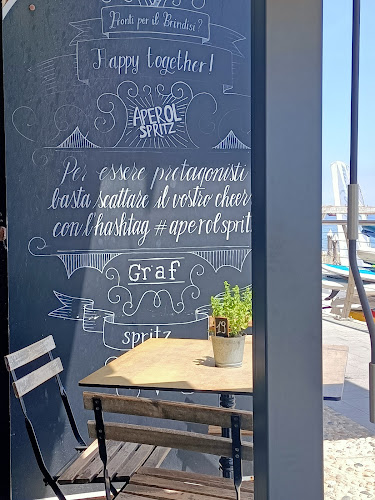 Pronti per il Brindisi?
Happy together!
APEROL
SPRITZ
Per essere protagonisti
basta scattare il vostro cheer
con l'hashtag #aperolsprit
Graf
spritz
19